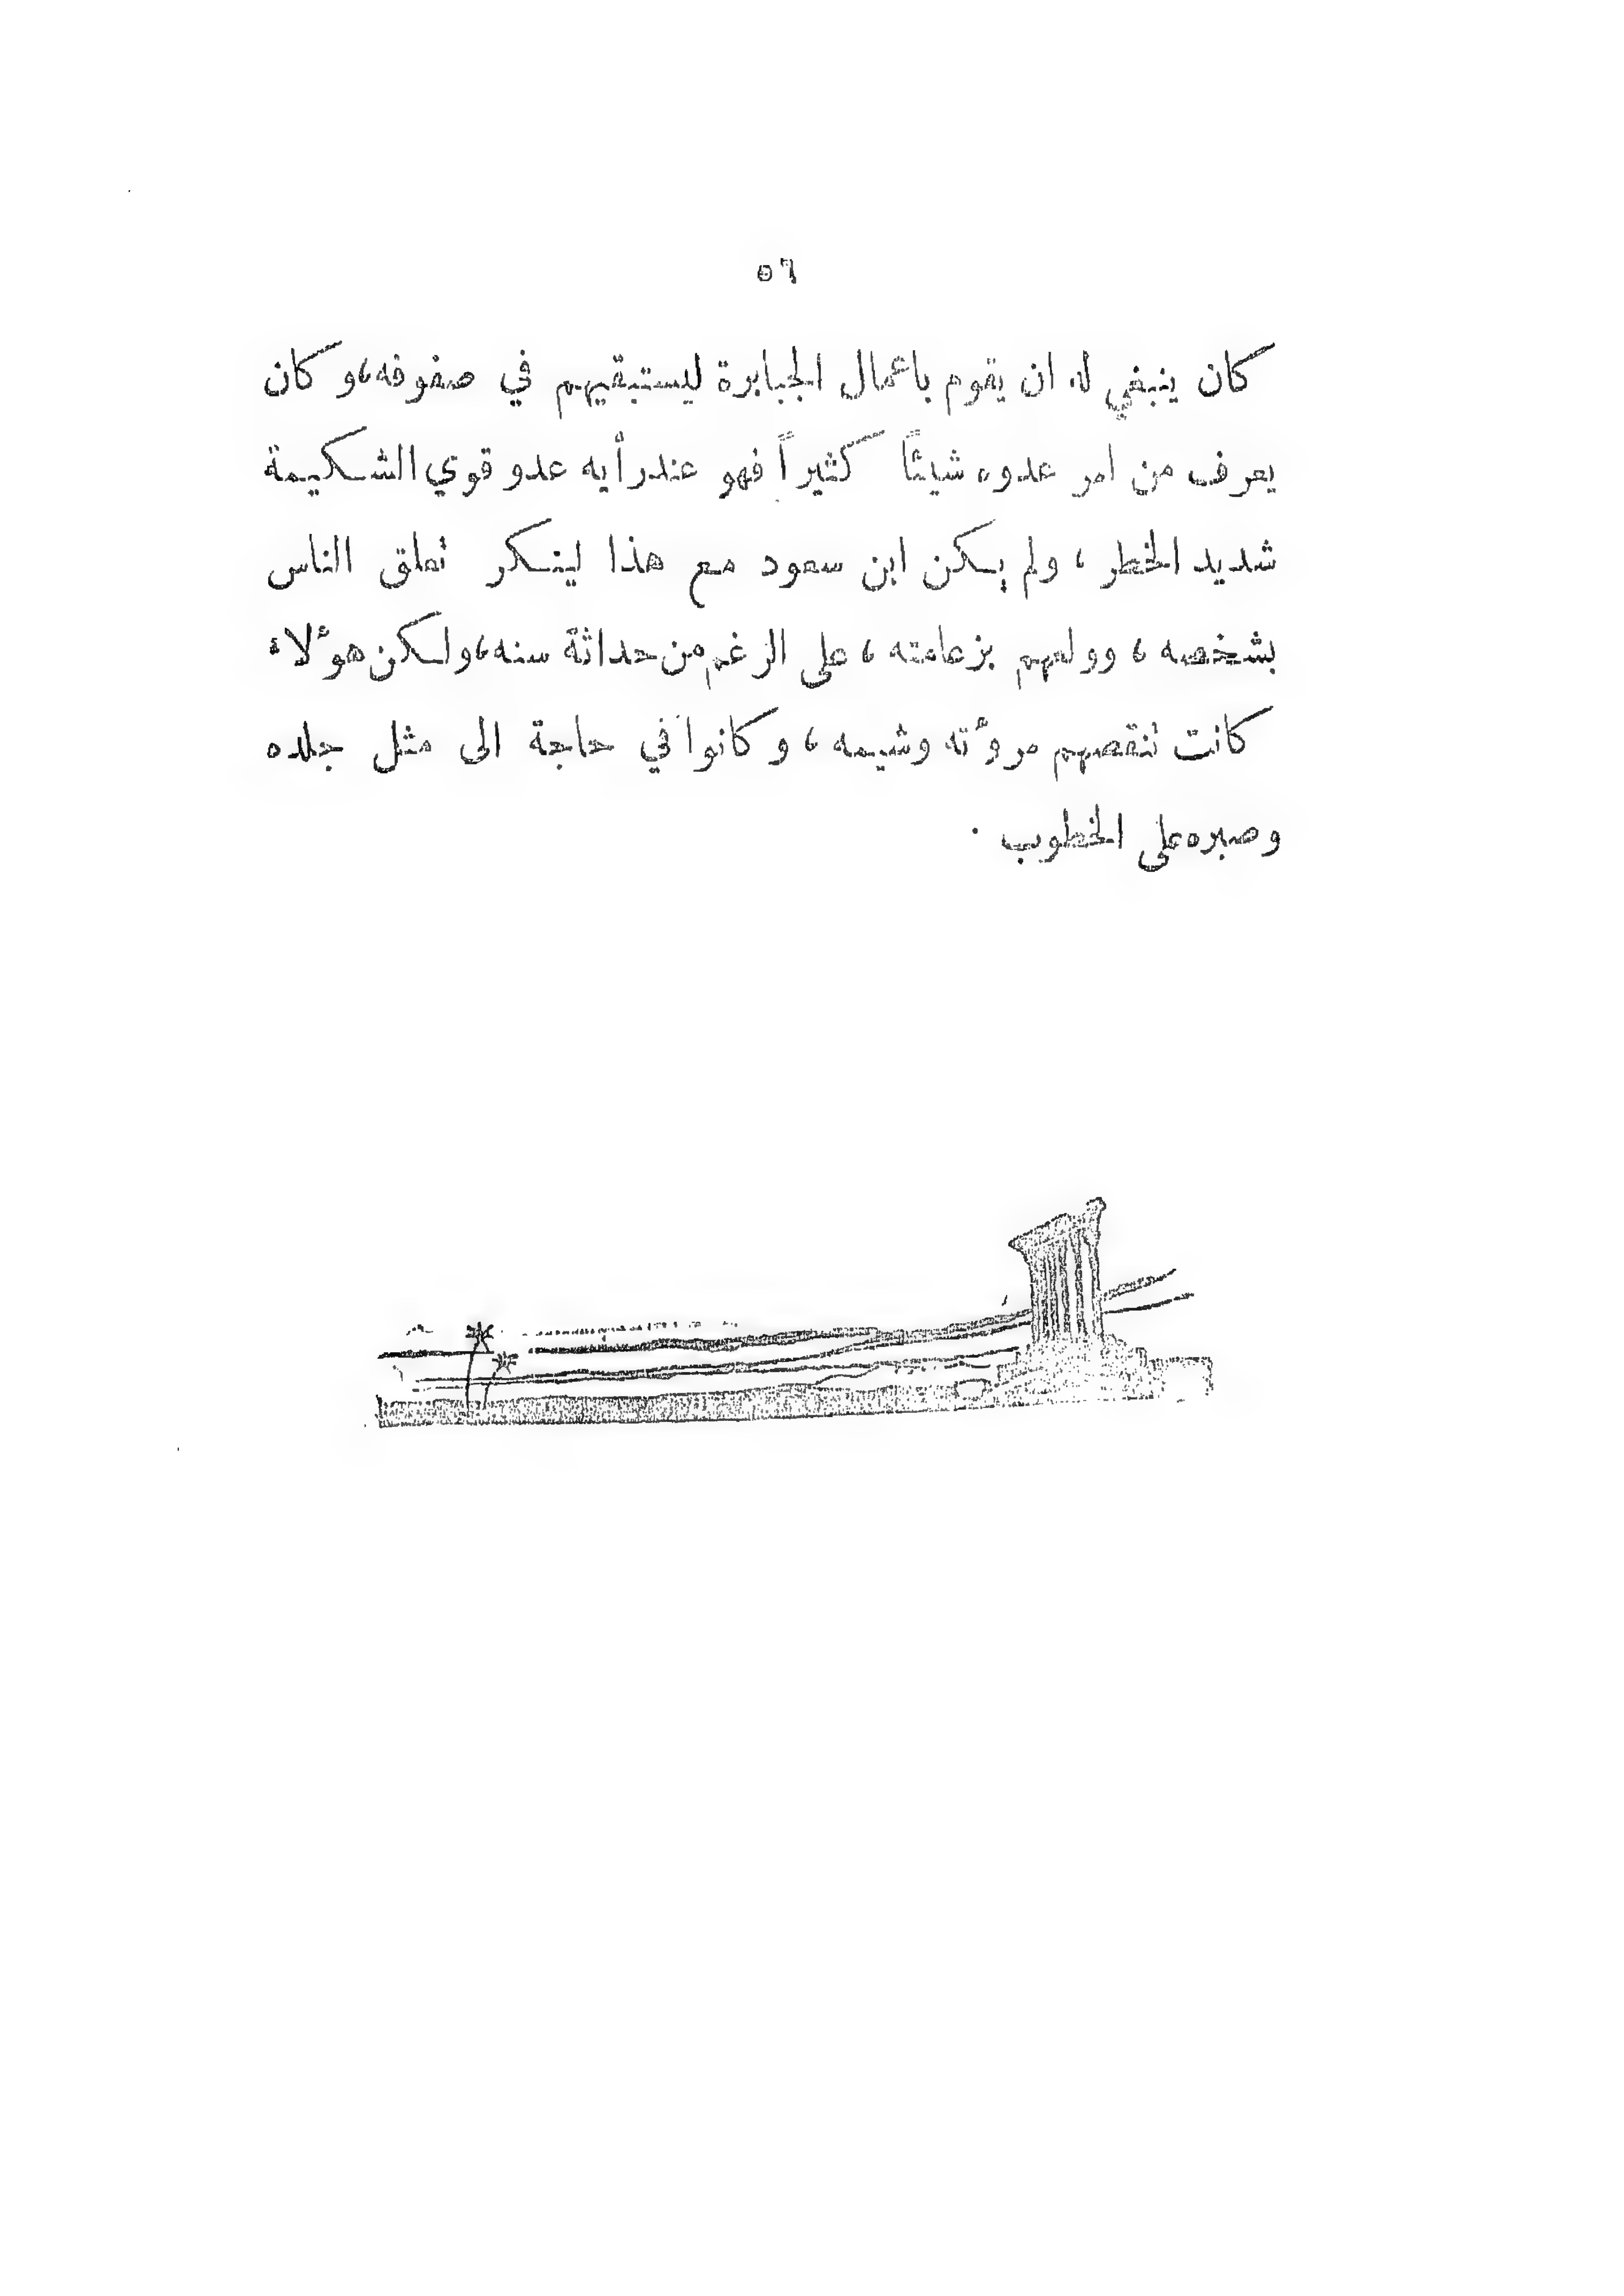 ٥٦
كان ينبغي له ان يقوم باعمال الجبابرة ليستبقيهم في صفوفه، وكان
يعرف من امر عدوه شيئاً كثيراً فهو عند رأيه عدو قوي الشكيمة
شديد الخطر ، ولم يكن ابن سعود مع هذا لينكر تعلق الناس
بشخصه ، وولعهم بزعامته ، على الرغم من حداثة سنه، ولكن هؤلاء
كانت تنقصهم مروءته وشيمه ، وكانوا في حاجة الى مثل جلده
وصبره على الخطوب .